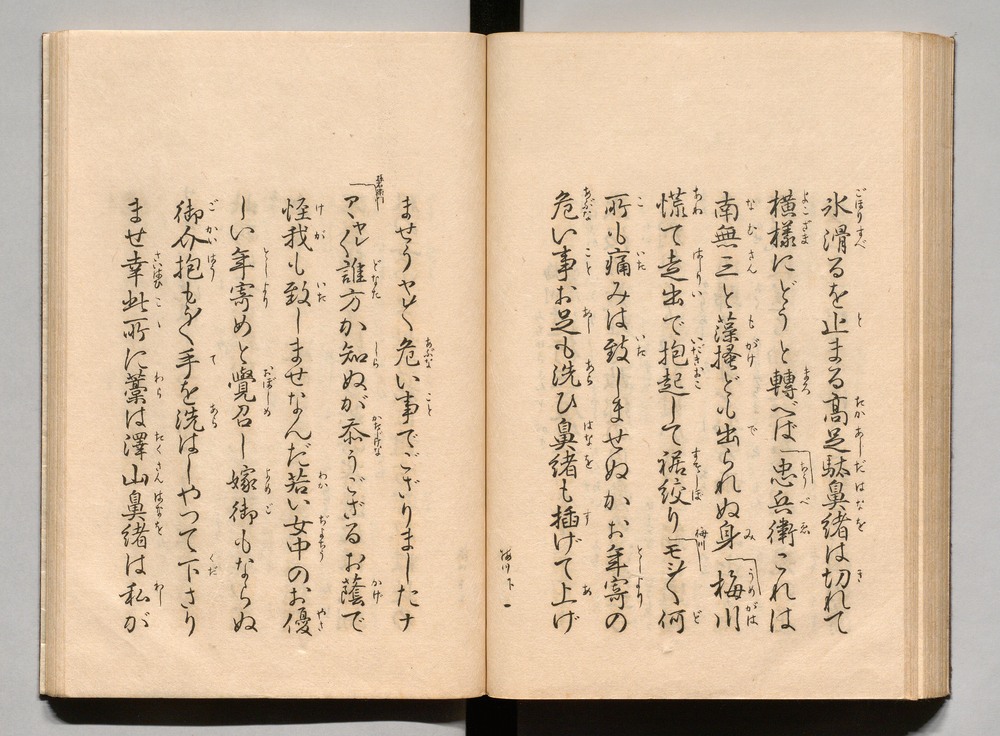 氷滑るを止まる高足駄鼻緒は切れて
横様にどうと轉べば忠兵衛これは
南無三と藻掻ども出られぬ身梅川
慌て走出で抱起して裾絞り 梅川 モシ〱何
所も痛みは致しませぬかお年寄の
危い事お足も洗ひ鼻緒も插げて上げ
梅川 下 一
ませうヤレ〱危い事でござりましたナ
アヽヤレ〱誰方か知ぬが忝うござるお蔭で
怪我も致しませなんだ若い女中のお優
しい年寄めと覺召し嫁御もならぬ
御介抱もう〱手を洗はしやつて下さり
ませ幸此所に藁は澤山鼻緒は私が